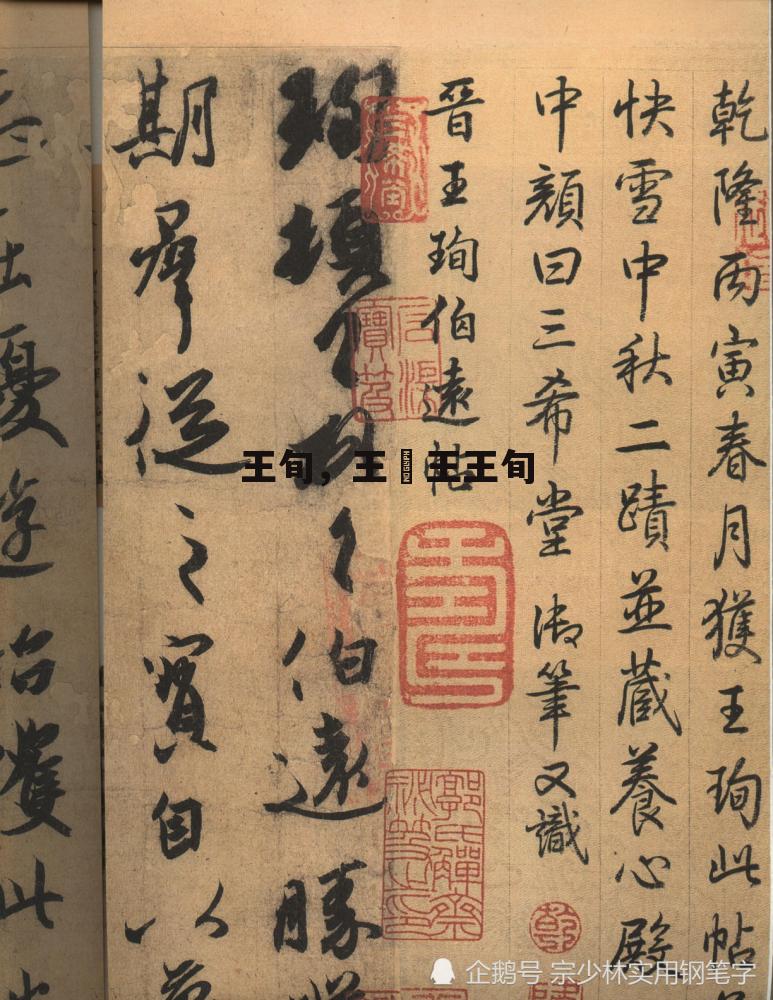 乾隆丙寅春月獲王珣此帖
快雪中秋二蹟並藏養心殿
中顏曰三希堂御筆又識
乾
晉王珣伯遠帖
郭氏觶齋秘笈之印
珣頓首頓首伯遠勝
期群從之寶自以
志在優遊始獲此
王旬，王王王旬
企鹅号 宗少林实用钢笔字